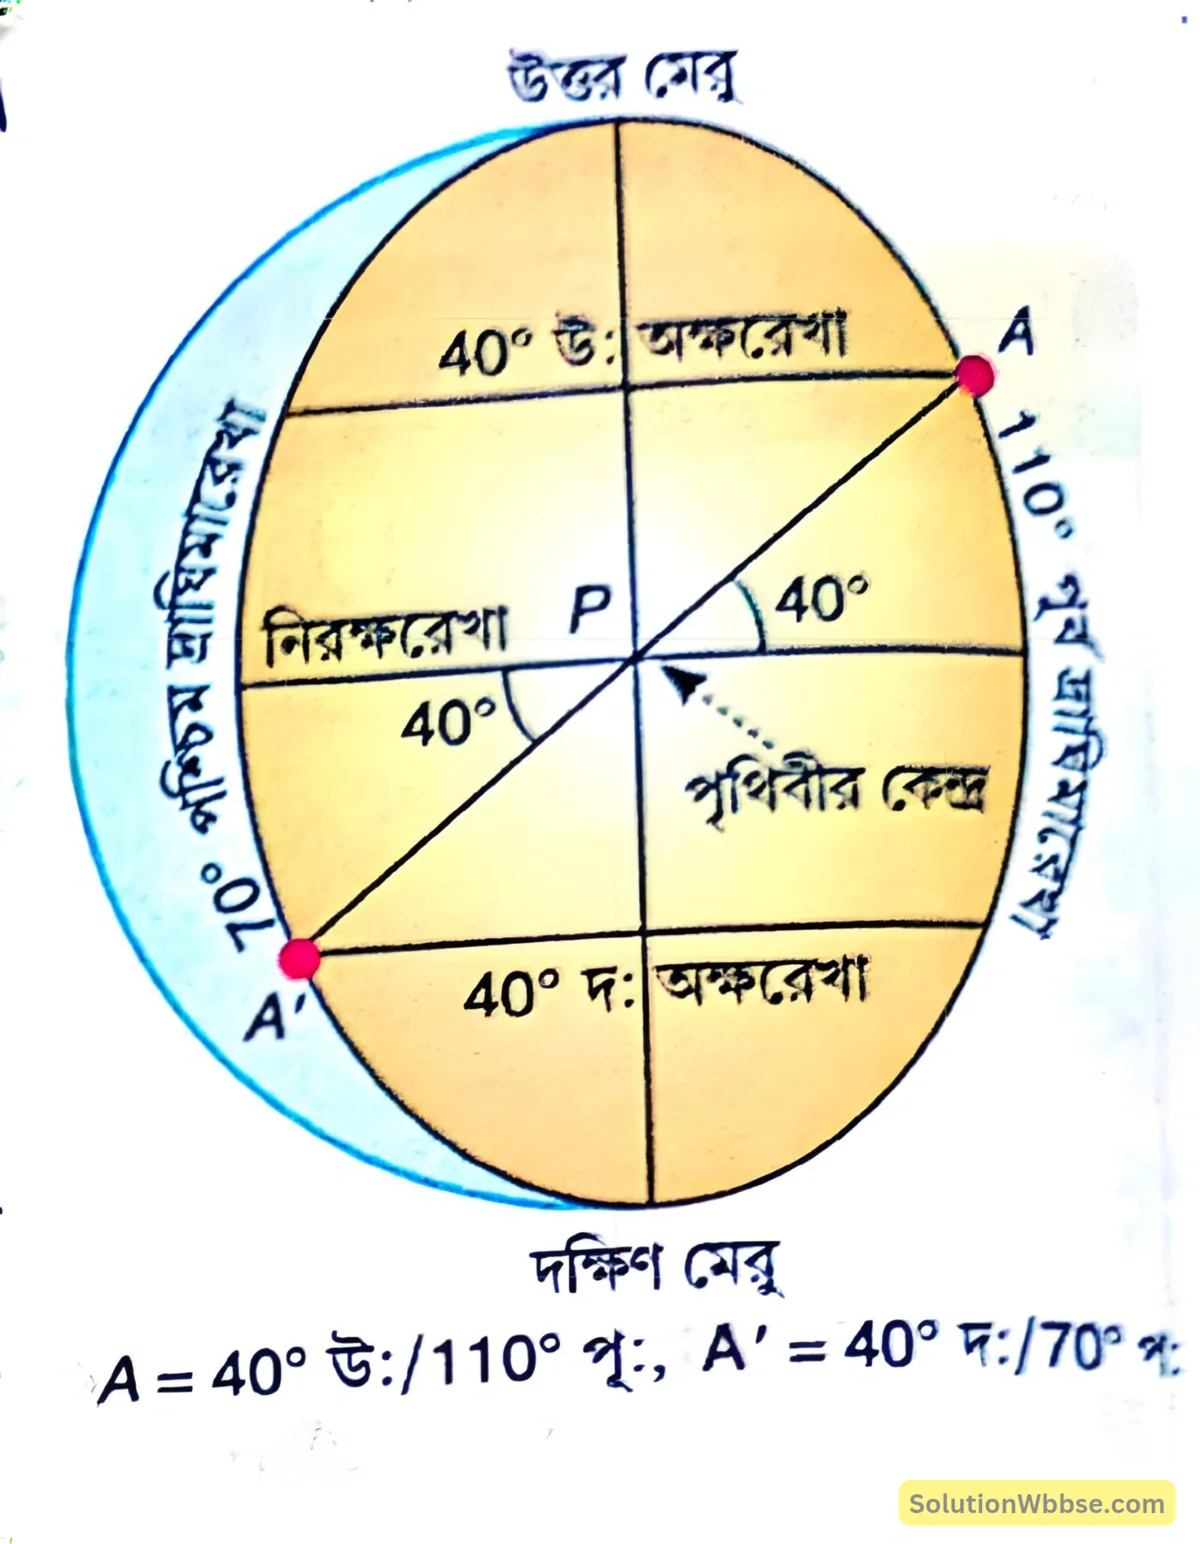 উত্তর মেরু
A
40° উ: অক্ষরেখা
110° পূর্ব দ্রাঘিমারেখা
70° পশ্চিম দ্রাঘিমারেখা
P
40°
নিরক্ষরেখা
40°
পৃথিবীর কেন্দ্র
40° দ: অক্ষরেখা
A'
দক্ষিণ মেরু
A = 40° উ:/110° পূ:, A' = 40° দ:/70° প:
SolutionWbbse.com